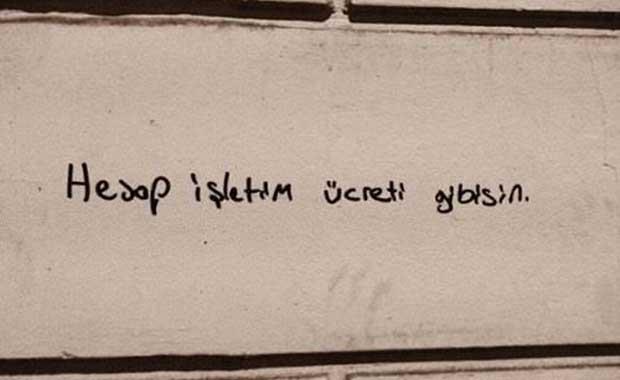 Hesap işletim ücreti gibisin.